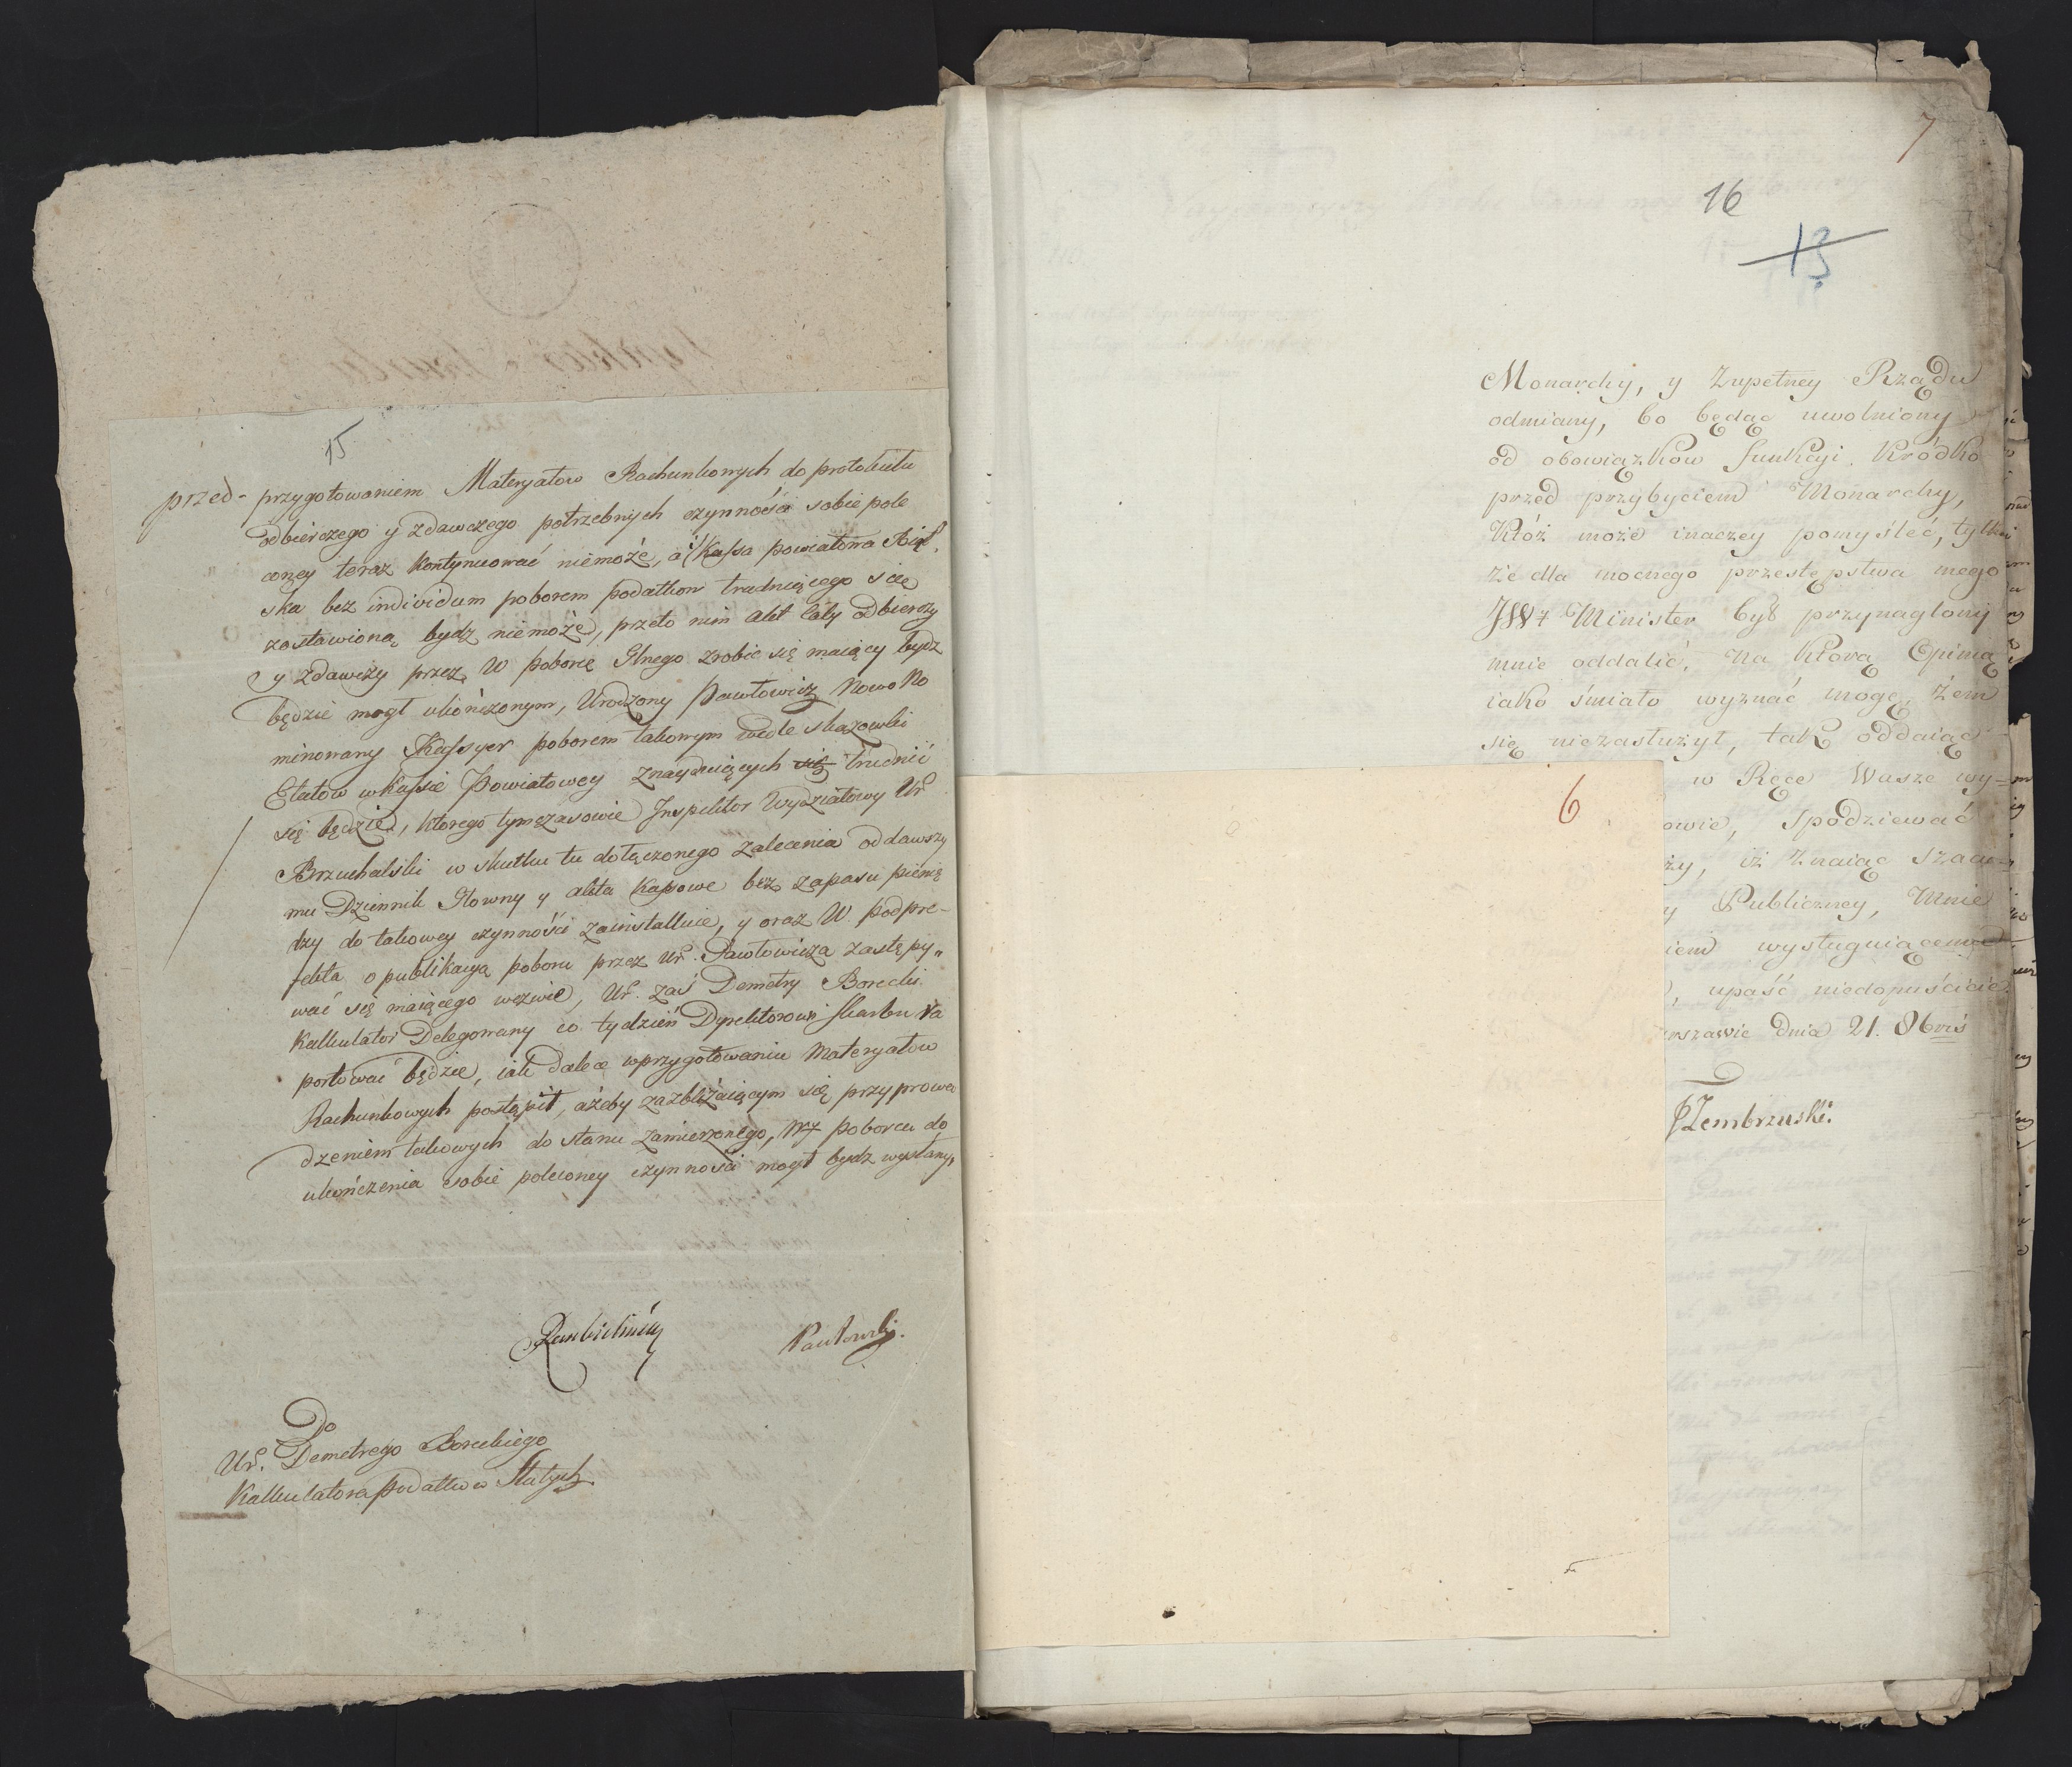 15
przed- przygotowaniem Materyałow Rachunkowych do protokułu
odbierczego y zdawczego potrzebnych czynności sobie pole
coney teraz kontynuować niemoże, a Kassa powiatowa
ska bez individum poborem podatkow trudniącego się
zostawioną bydz niemoże, przeto nim akt cały odbierczy
y zdawczy przez W poborcę Glnego zrobić się maiący bydz
będzie mogł ukończonym, Urodzony Pawłowicz Nowo No
minowany Kassyer poborem takowym wedle skazowki
Etatow w Kassie Powiatowey znayduiących się trudnić
się będzie, ktorego tymczasowie Inspektor Wydziałowy Ur
Brzuchalski w skutku tu dołączonego zalecenia oddawszy
mu Dziennik Głowny y akta Kassowe bez zapasu pienię
dzy do takowey czynności zainstalluie, y oraz W. Podpre-
fekta o publikacyą poboru przez Ur. Pawłowicza zastępy„
wać się maiącego wezwie, Ur. zaś Demetry Borecki
Kalkulator Delegowany co tydzień Dyrektorowi Skarbu Ra
portować będzie, iak dalece w przygotowaniu Materyałow
Rachunkowych postąpił, ażeby za zbliżaiącym się przyprowa
dzeniem takowych do stanu zamierzonego, Wy poborca do
ukończenia sobie poleconey czynności mogł bydz wysłany.
Do
Ur. Demetrego Boreckiego
Kalkulatora Podatkow Stałych
7
16
13
Monarchy, y Zupełney Rządu
odmiany, bo będąc uwolniony
od obowiązków funkcyi Kródko
przed przybyciem Monarchy,
Któż może inaczey pomyśleć, tylko
że dla mocnego przestępstwa mego
JWy Minister był przynaglony
mnie oddalić, Na Którą Opinią
iako śmiało wyznać mogę, żem
się niezasłużył, tak oddaiąc
w Ręce Wasze wy-
owie, Spodziewać
ży, iż Znaiąc szacu-
y Publiczney, Mnie
iem wysługuiącemu
, upaść niedopuścicie
rszawie dnia 21. 8bris
PZembrzuski.
6